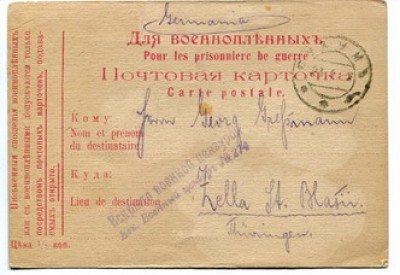 Germania
Для военноплѣнныхъ.
Pour les prisonniers de guerre
Почтовая карточка
Carte postale.
Кому:
Nom et prénom
du destinataire:
Herrn Georg Greßmann
Куда:
Lieu de destination:
Zella St. Blasii.
Thüringen.
Письменныя сношенія военноплѣнныхъ
или съ военноплѣнными допускаются только
посредствомъ почтовыхъ карточекъ, подаваемыхъ
открыто.
Цѣна 1½ коп.
военной цензурою